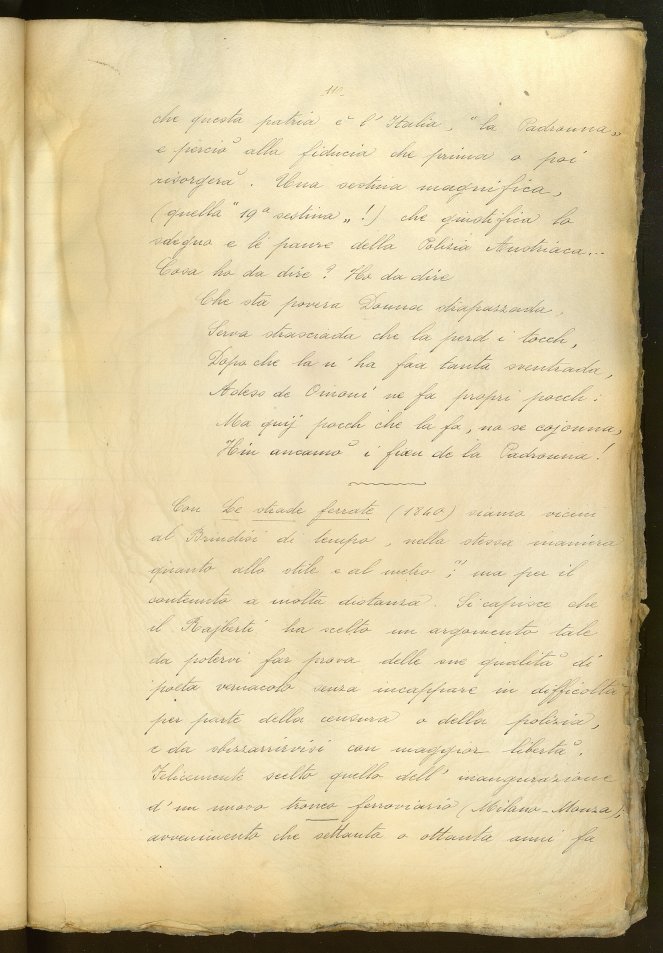 che questa patria è l'Italia, "la Padronna„
e perciò alla fiducia che prima o poi
risorgerà. Una sestina magnifica,
(quella "19ª sestina„!) che giustifica lo
sdegno e le paure della Polizia Austriaca...
Cosa ho da dire? Ho da dire
Che sta povera Donna strapazzada,
Serva strasciada che la perd i tocch,
Dopo che la n'ha faa tanta sventrada,
Adess de Omoni ne fa propri pocch:
Ma quij pocch che la fa, no se cojonna,
Hin ancamò i fioeu de la Padronna!
Con Le strade ferrate (1840) siamo vicini
al Brindisi di tempo, nella stessa maniera
quanto allo stile e al metro; ma per il
contenuto a molta distanza. Si capisce che
il Rajberti ha scelto un argomento tale
da potervi far prova delle sue qualità di
poeta vernacolo senza incappare in difficoltà
per parte della censura o della polizia,
e da sbizzarrirvisi con maggior libertà.
Felicemente scelto quello dell'inaugurazione
d'un nuovo tronco ferroviario (Milano-Monza),
avvenimento che settanta o ottanta anni fa